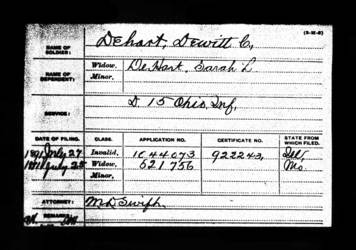 (3-M-2)
NAME OF SOLDIER: Dehart, Dewitt C,
NAME OF DEPENDENT: Widow. DeHart, Sarah L
Minor.
SERVICE: D 15 Ohio, Inf,
DATE OF FILING. CLASS. APPLICATION NO. CERTIFICATE NO. STATE FROM WHICH FILED.
July 27 Invalid, 1044073 922243,
Widow, 521756 Mo
Minor,
ATTORNEY: M D Swift
REMARKS: